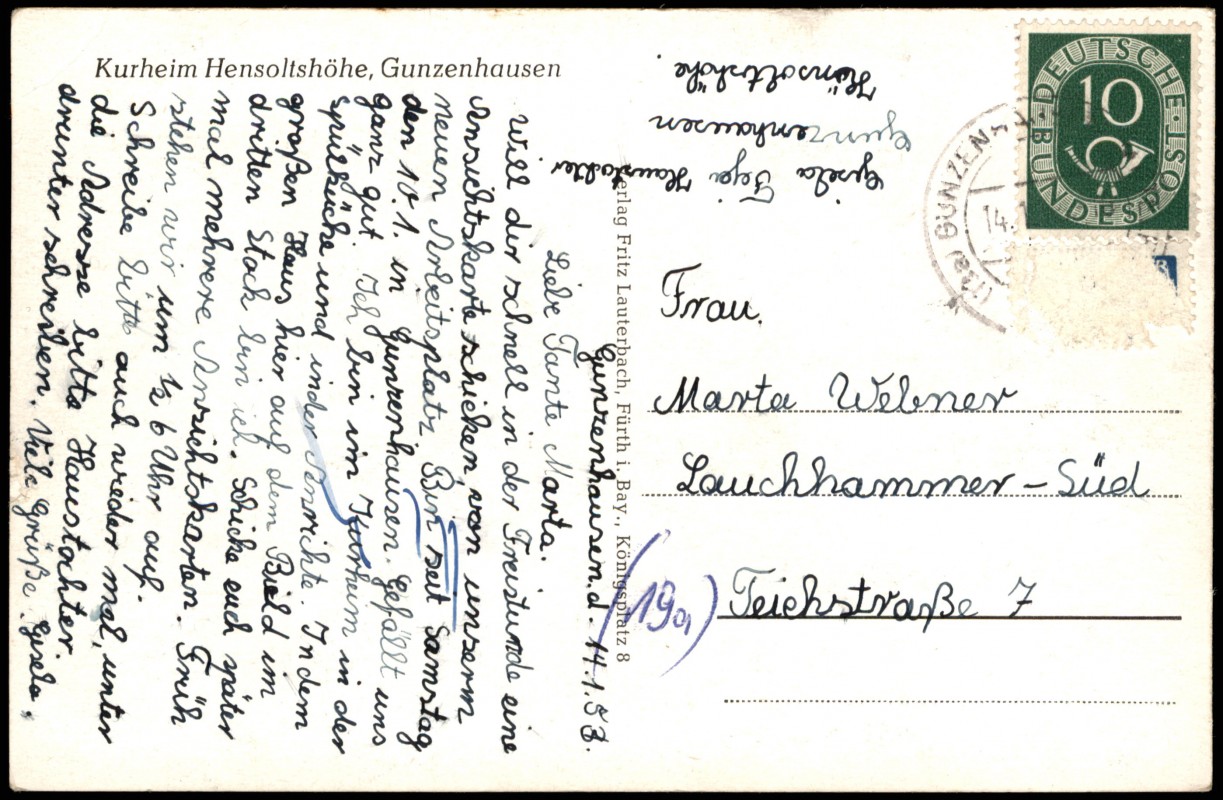 Kurheim Hensoltshöhe, Gunzenhausen
Gunzenhausen.d. 14.1.53.
Liebe Tante Marta.
Will dir schnell in der Freistunde eine
Ansichtskarte schicken, von unserm
neuen Arbeitsplatz. Bin seit Samstag
den 10.1. in Gunzenhausen. Gefällt uns
ganz gut. Ich bin im Kurheim in der
Spülküche und in der Anrichte. In dem
großen Haus hier auf dem Bield im
dritten Stock bin ich. Schicke euch später
mal mehrere Ansichtskarten. Früh
stehen wir um ½ 6 Uhr auf.
Schreibe bitte auch wieder mal, unter
die Adresse bitte Haustochter
drunter schreiben. Viele Grüße. Gisela.
Verlag Fritz Lauterbach, Fürth i. Bay., Königsplatz 8
Gisela Haustochter
Gunzenhausen
Hensoltshöhe.
DEUTSCHE BUNDESPOST
10
(13a) GUNZEN
14.
Frau.
Marta Webner
Lauchhammer-Süd
(19a)
Teichstraße 7